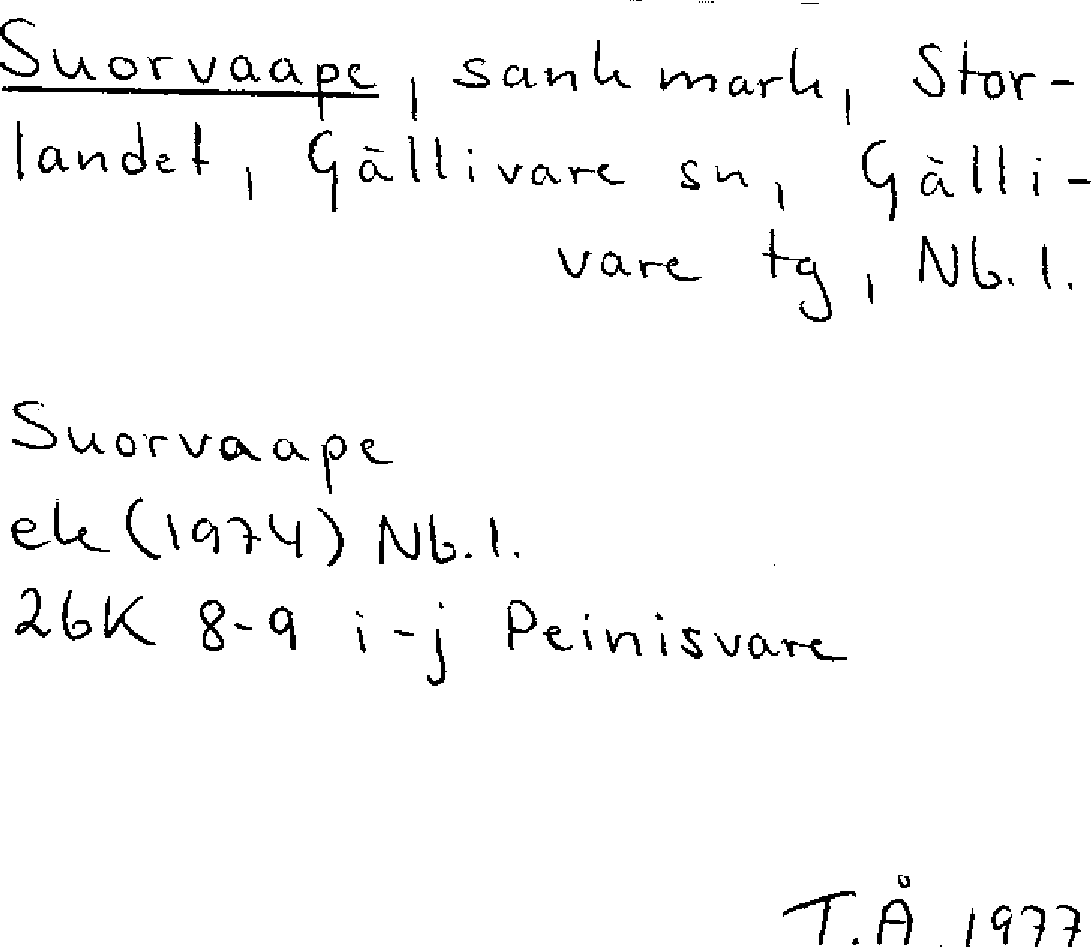 Suorvaape, sank mark, Stor-
landet, Gällivare sn, Gälli-
vare tg, Nb. l.
Suorvaape
ek (1974) Nb. l.
26K 8-9 i-j Peinisvare
T.Å. 1977